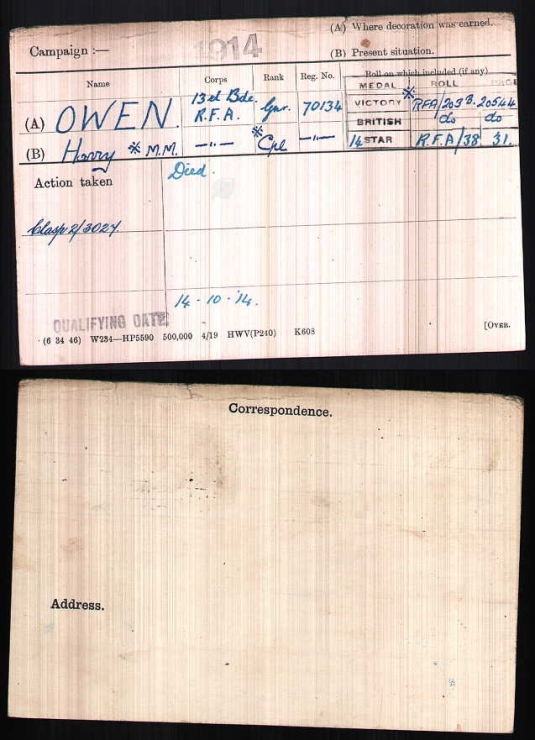 (A) Where decoration was earned.
Campaign :— 1914
(B) Present situation.
Name Corps Rank Reg. No. Roll on which included (if any)
MEDAL ROLL PAGE
(A) OWEN. 13th Bde. R.F.A. Gnr. 70134 VICTORY * RFA/203B. 20544
BRITISH do do
(B) Harry * M.M. —"— * Cpl —"— 14 STAR R.F.A/38 31.
Action taken Died.
Clasp 2/3027
14-10-14.
QUALIFYING DATE
(6 34 46) W234—HP5590 500,000 4/19 HWV(P240) K608 [OVER.
Correspondence.
Address.